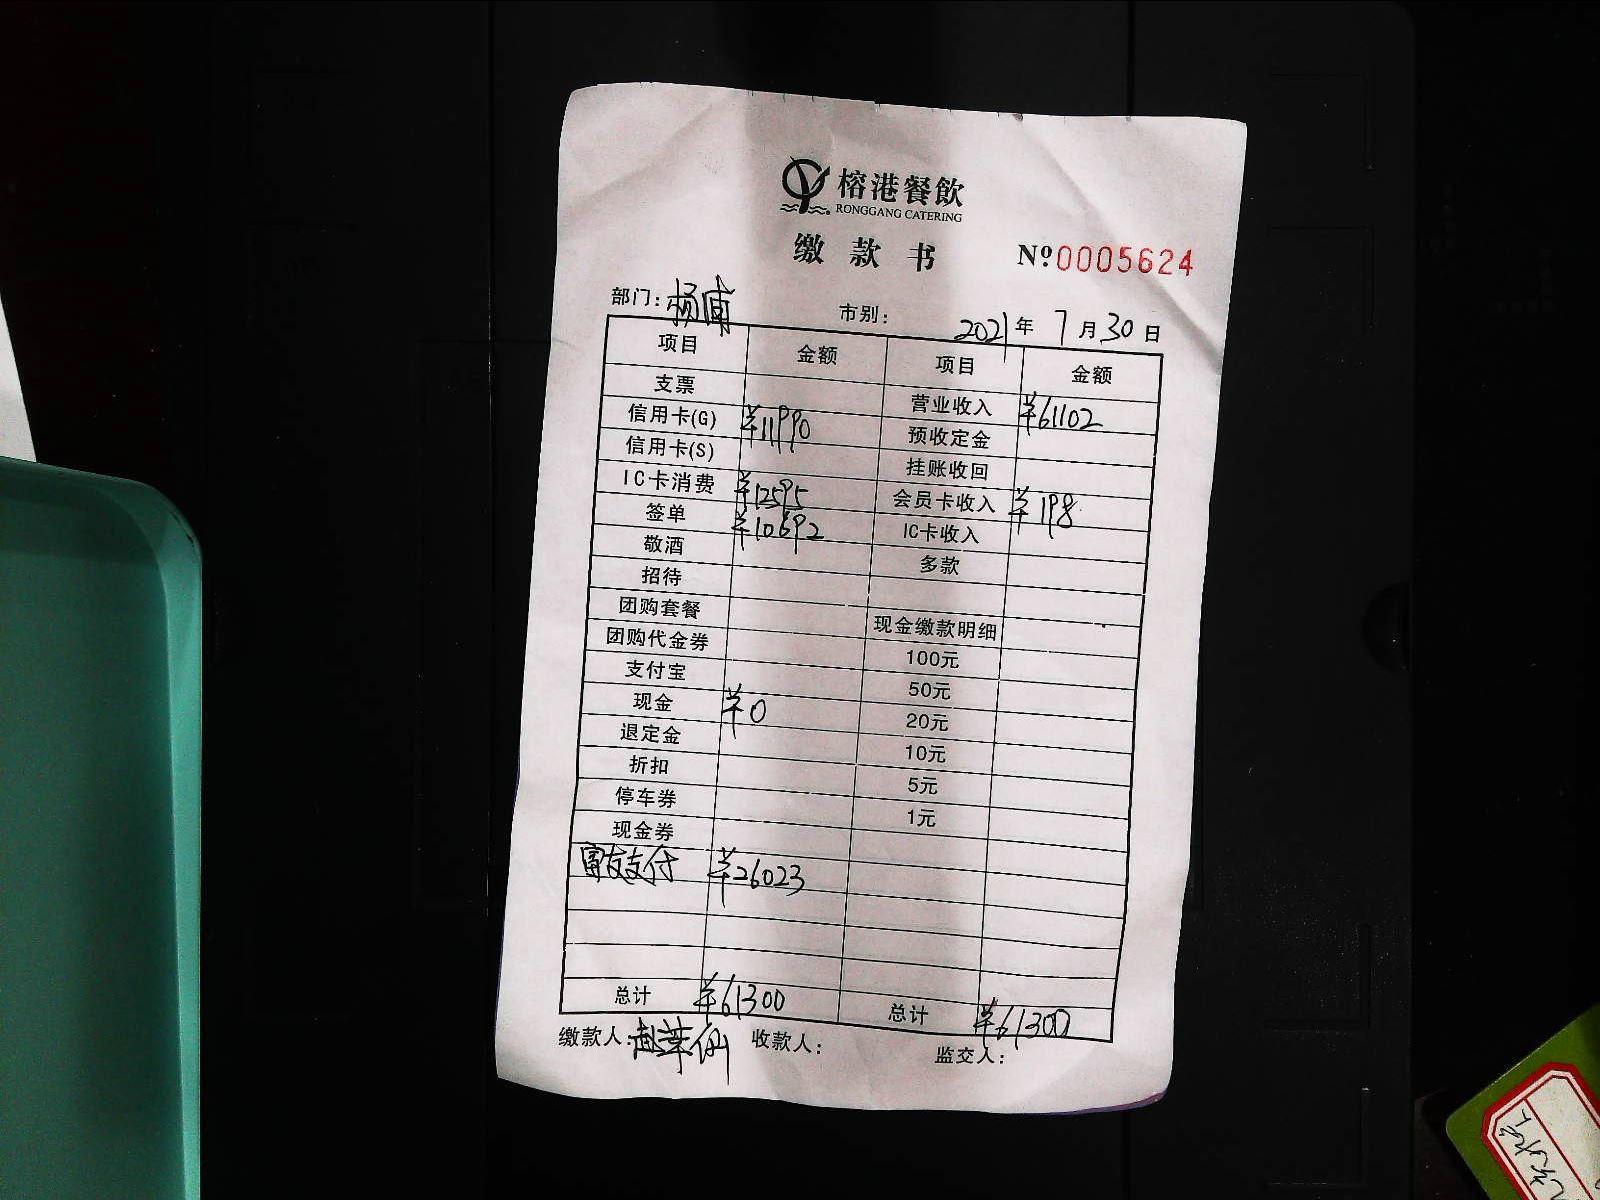 榕港餐飲
RONGGANG CATERING
缴款书 Nº0005624
部门:杨浦 市别: 2021年7月30日
项目 金额 项目 金额
支票 营业收入 ¥61102
信用卡(G) ¥11990 预收定金
信用卡(S) 挂账收回
IC卡消费 ¥12595 会员卡收入 ¥198
签单 ¥10692 IC卡收入
敬酒 多款
招待
团购套餐 现金缴款明细
团购代金券 100元
支付宝 50元
现金 ¥0 20元
退定金 10元
折扣 5元
停车券 1元
现金券
富友支付 ¥26023
总计 ¥61300 总计 ¥61300
缴款人: 收款人: 监交人: